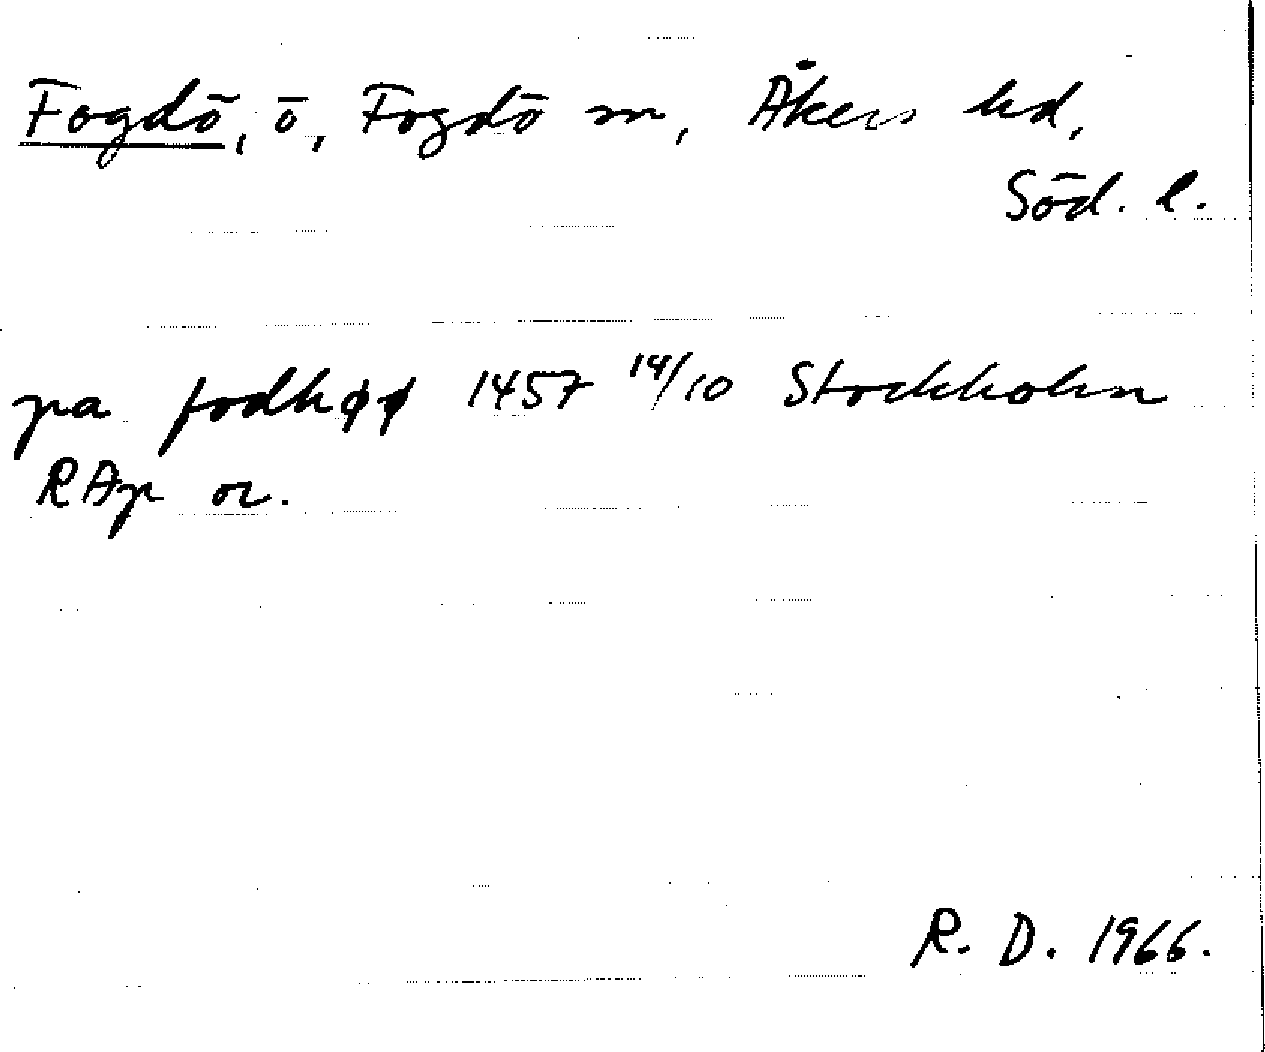 Fogdö, ö, Fogdö sn, Åkers hd,
Söd. l.
pa fodhøø 1457 14/10 Stockholm
RAp or.
R. D. 1966.